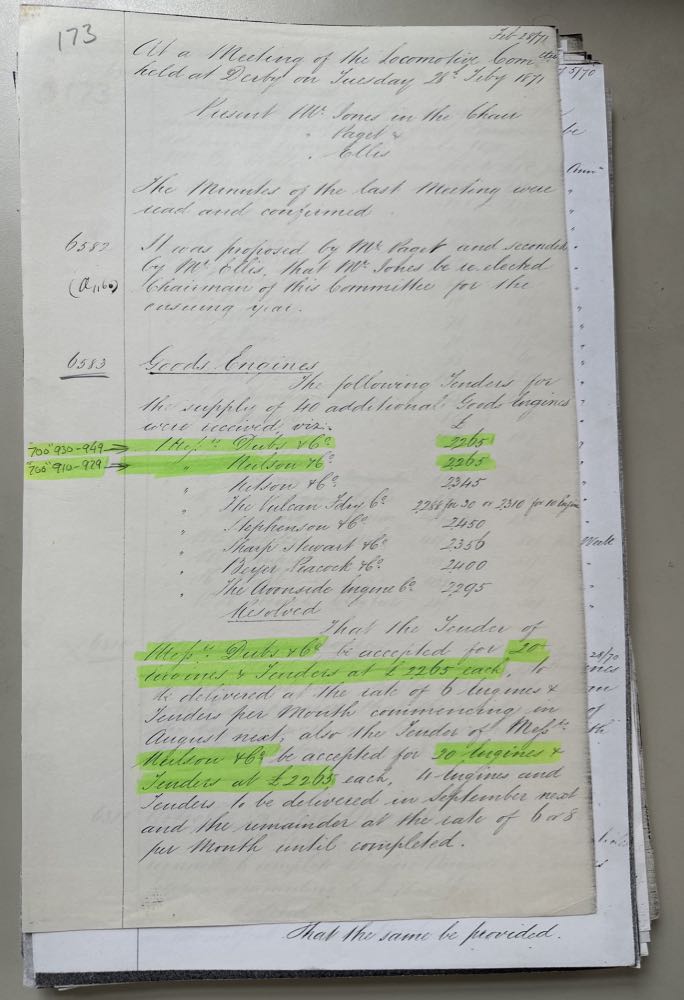 173
Feb 28/71
At a Meeting of the Locomotive Com
held at Derby on Tuesday 28th Feby 1871
Present Mr. Jones in the Chair
" Paget &
" Ellis
The Minutes of the last Meeting were
read and confirmed
6582 It was proposed by Mr. Paget and seconded
by Mr. Ellis, that Mr. Jones be re-elected
Chairman of this Committee for the
ensuing year.
6583 Goods Engines
The following Tenders for
the supply of 40 additional Goods Engines
were received, viz. £
"700" 930-949 → Messrs. Dubs & Co. 2265
"700" 910-929 → " Neilson & Co. 2265
" Kitson & Co. 2345
" The Vulcan Fdry Co. for 30 or 2310 for 10 Engines
" Stephenson & Co. 2450
" Sharp Stewart & Co. 2356
" Beyer Peacock & Co. 2400
" The Avonside Engine Co. 2295
Resolved
That the Tender of
Messrs. Dubs & Co. be accepted for 20
Engines & Tenders at £2265 each, to
be delivered at the rate of 6 Engines &
Tenders per Month commencing in
August next, also the Tender of Messrs.
Neilson & Co. be accepted for 20 Engines &
Tenders at £2265 each, 4 Engines and
Tenders to be delivered in September next
and the remainder at the rate of 6 or 8
per Month until completed.
That the same be provided.